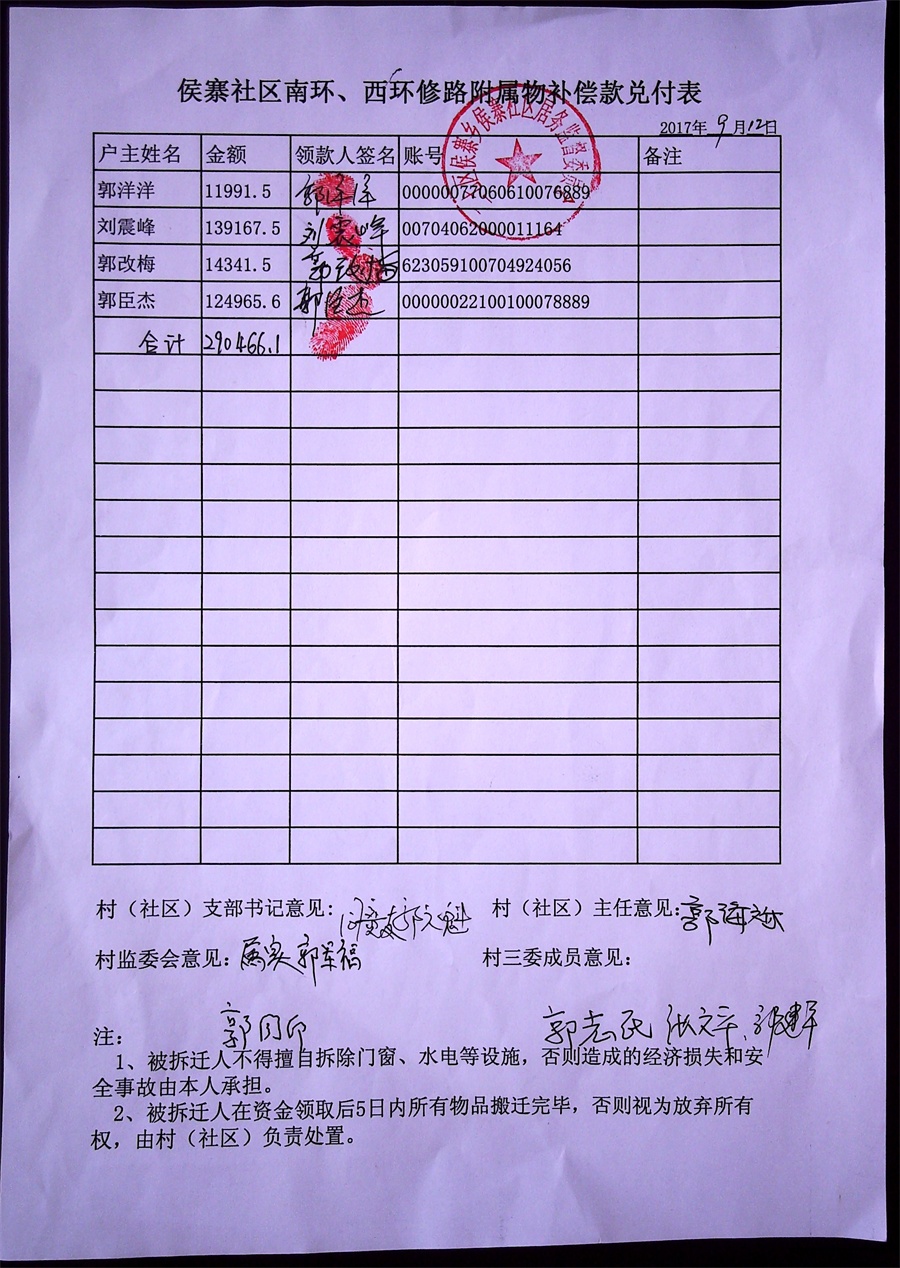 侯寨社区南环、西环修路附属物补偿款兑付表
2017年9月12日
户主姓名 金额 领款人签名 账号 备注
郭洋洋 11991.5 郭洋洋 00000077060610076889
刘震峰 139167.5 刘震峰 00704062000011164
郭改梅 14341.5 郭改梅 623059100704924056
郭臣杰 124965.6 郭臣杰 00000022100100078889
合计 290466.1
区侯寨乡侯寨社区居务监督委员会
村（社区）支部书记意见: 同意 村（社区）主任意见: 郭海
村监委会意见: 属实 郭军福 村三委成员意见:
注: 郭同印 郭志民 张文平、郭建军
1、被拆迁人不得擅自拆除门窗、水电等设施，否则造成的经济损失和安
全事故由本人承担。
2、被拆迁人在资金领取后5日内所有物品搬迁完毕，否则视为放弃所有
权，由村（社区）负责处置。